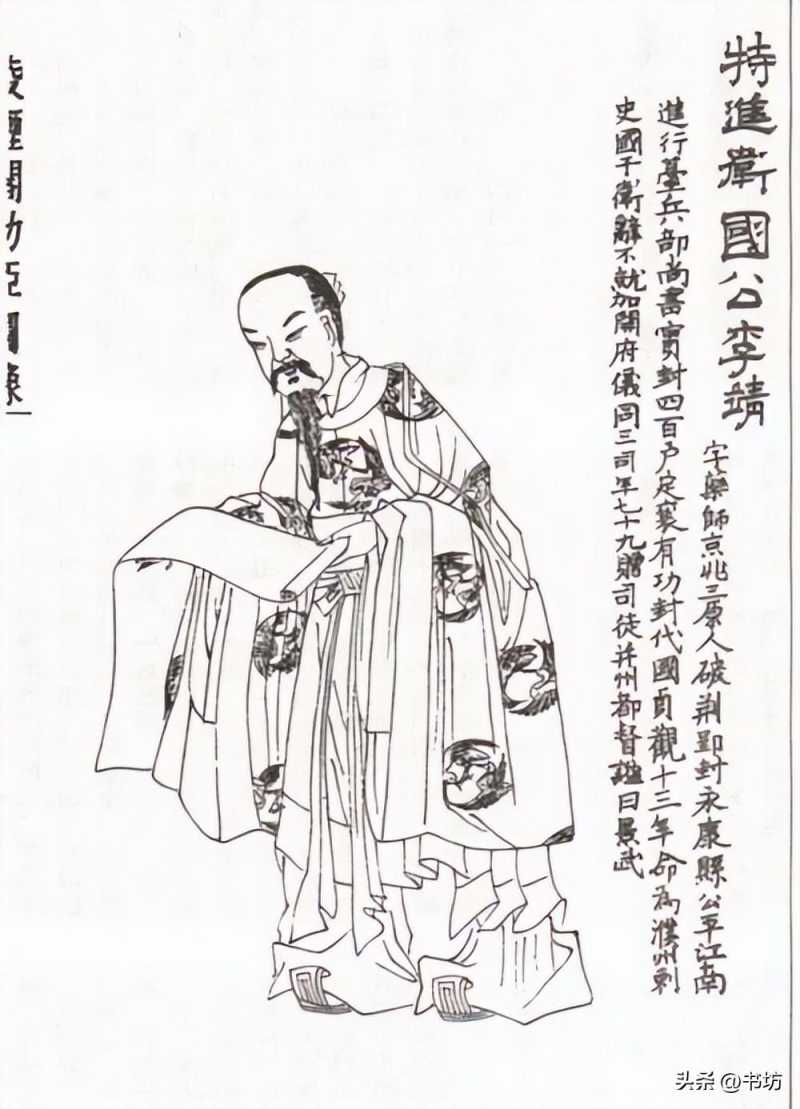 特進衛國公李靖
字藥師京兆三原人破荆郢封永康縣公平江南
進行臺兵部尚書實封四百戶定襄有功封代國貞觀十三年命為濮州刺
史國于衛辭不就加開府儀同三司年七十九贈司徒并州都督謚曰景武
煙閣功臣圖像
头条 @书坊